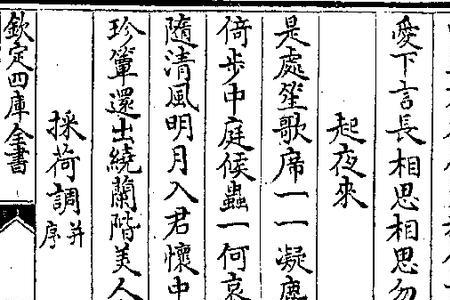 愛下言長相思相思勿
起夜來
是處笙歌席一一凝塵
倚步中庭候蟲一何哀
隨清風明月入君懷中
珍簟還出繞蘭階美人
採荷調并序
欽定四庫全書